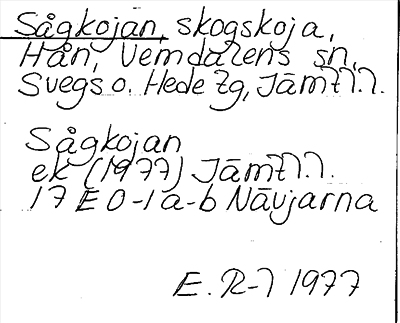 Sågkojan, skogskoja,
Hån, Vemdalens sn,
Svegs o. Hede tg, Jämtl.l.
Sågkojan
ek (1977) Jämtl.l.
17 E 0-1 a-b Nävjarna
E. R-l 1977